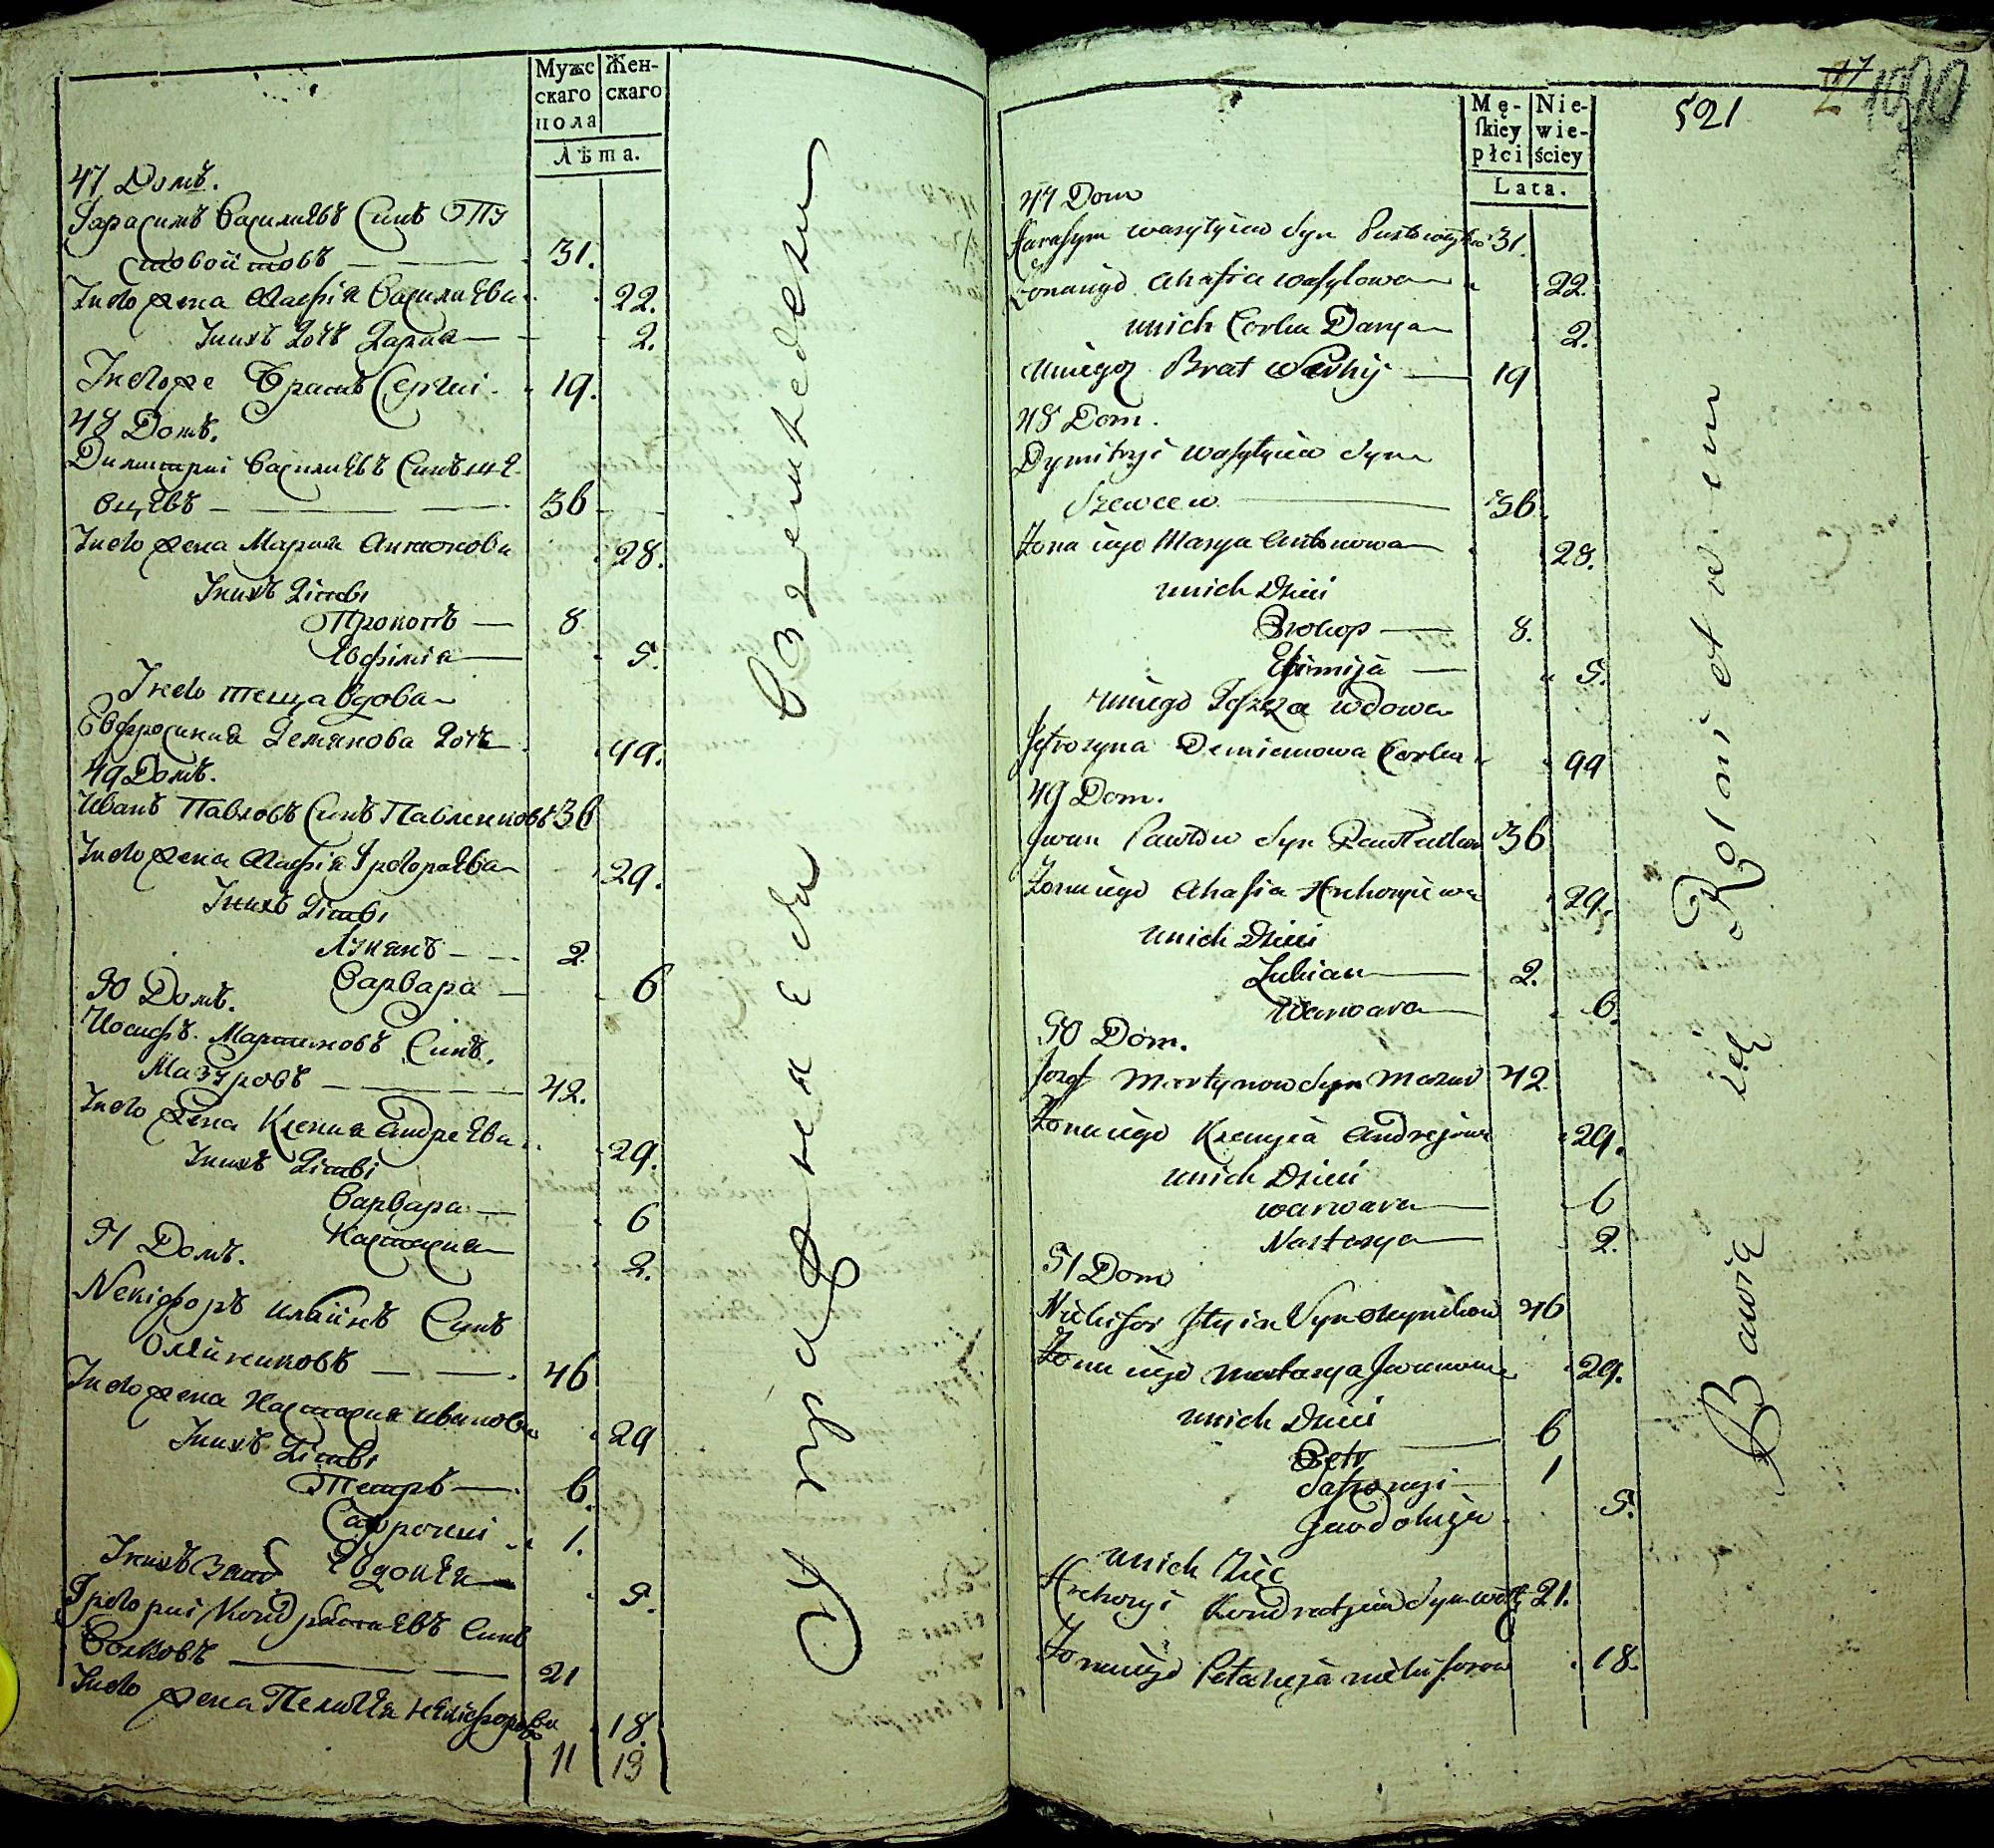 Муже
скаго
пола
Жен-
скаго
Лѣта.
47 Домъ.
Гарасимъ Василиевъ Синъ Пу
стовойтовъ 31.
Іиго жена Агафія Василиева 22.
Інихъ дочь Дария 2.
Інегоже Братъ Сергий 19.
48 Домъ.
Димитрий Василиевъ Синъ Ше
вцѣвъ 36
Іиго жена Мария Антонова 28.
Інихъ Дѣти
Прокопъ 8
Евфимія 5.
Інего теща вдова
Евфросиния Демянова дочь 49.
49 Домъ.
Иванъ Павловъ Синъ Павленковъ 36
Іиго жена Агафія Григориева 29.
Інихъ Дѣти
Лукянъ 2
Варвара 6
50 Домъ.
Иосифъ Мартиновъ Синъ
Мазуровъ 42.
Іиго жена Ксения Андреева 29.
Інихъ Дѣти
Варвара 6
Настасия 2.
51 Домъ.
Никифоръ Илиинъ Синъ
Олийниковъ 46
Іиго жена Настасия Иванова 29
Інихъ Дѣти
Петръ 6.
Сафроний 1.
Евдокия 5.
Інихъ Зять
Григорий Кондратиевъ Синъ
Волковъ 21
Іиго жена Пелагея Никифорова 18.
11 13
Mę-
skiey
płci
Nie-
wie-
ściey
Lata.
521
1090
47 Dom
Harasym Wasylyiew Syn Pustowoytow 31.
Żona iego Ahafia Wasylowa 22.
unich Corka Darya 2.
uniego Brat Serhij 19
48 Dom.
Dymitryi Wasylyiew Syn
Szewcew 36.
Żona iego Marya Antonowa 28.
unich Dzieci
Prokop 8.
Efimija 5.
uniego Teszcza wdowa
Jefrozyna Demianowa Corka 49
49 Dom.
Jwan Pawlow Syn Pawlenkow 36
Żona iego Ahafia Hrehoryiewa 29.
unich Dzieci
Lukian 2.
Warwara 6.
50 Dom.
Jozef Martynow Syn Mazur 42
Żona iego Xenyia Andrejewa 29.
unich Dzieci
Warwara 6
Nastasya 2.
51 Dom
Nikifor Jlyin Syn Oleynikow 46
Żona iego Nastasya Jwanowa 29.
unich Dzieci
Petr 6
Safronyi 1
Jewdokija 5.
unich Zięć
Hrehoryi Kondratjew Syn Wołk 21.
Żona iego Pelaheja Nikiforow 18.